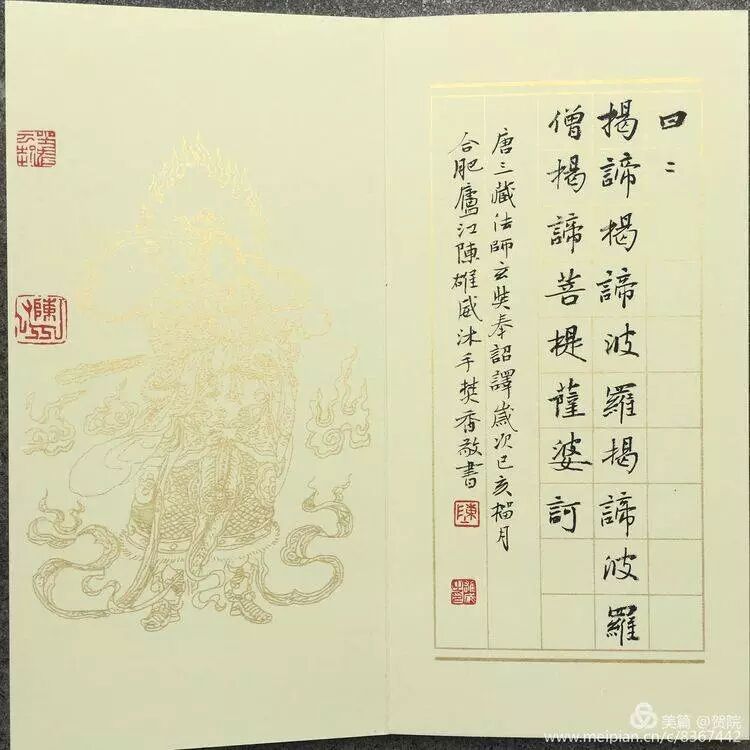 曰〻
揭諦揭諦波羅揭諦波羅
僧揭諦菩提薩婆訶
唐三藏法師玄奘奉詔譯歲次己亥榴月
合肥廬江陳雄威沐手焚香敬書
陳
陳
美篇 @贺院
www.meipian.cn/c/8367442